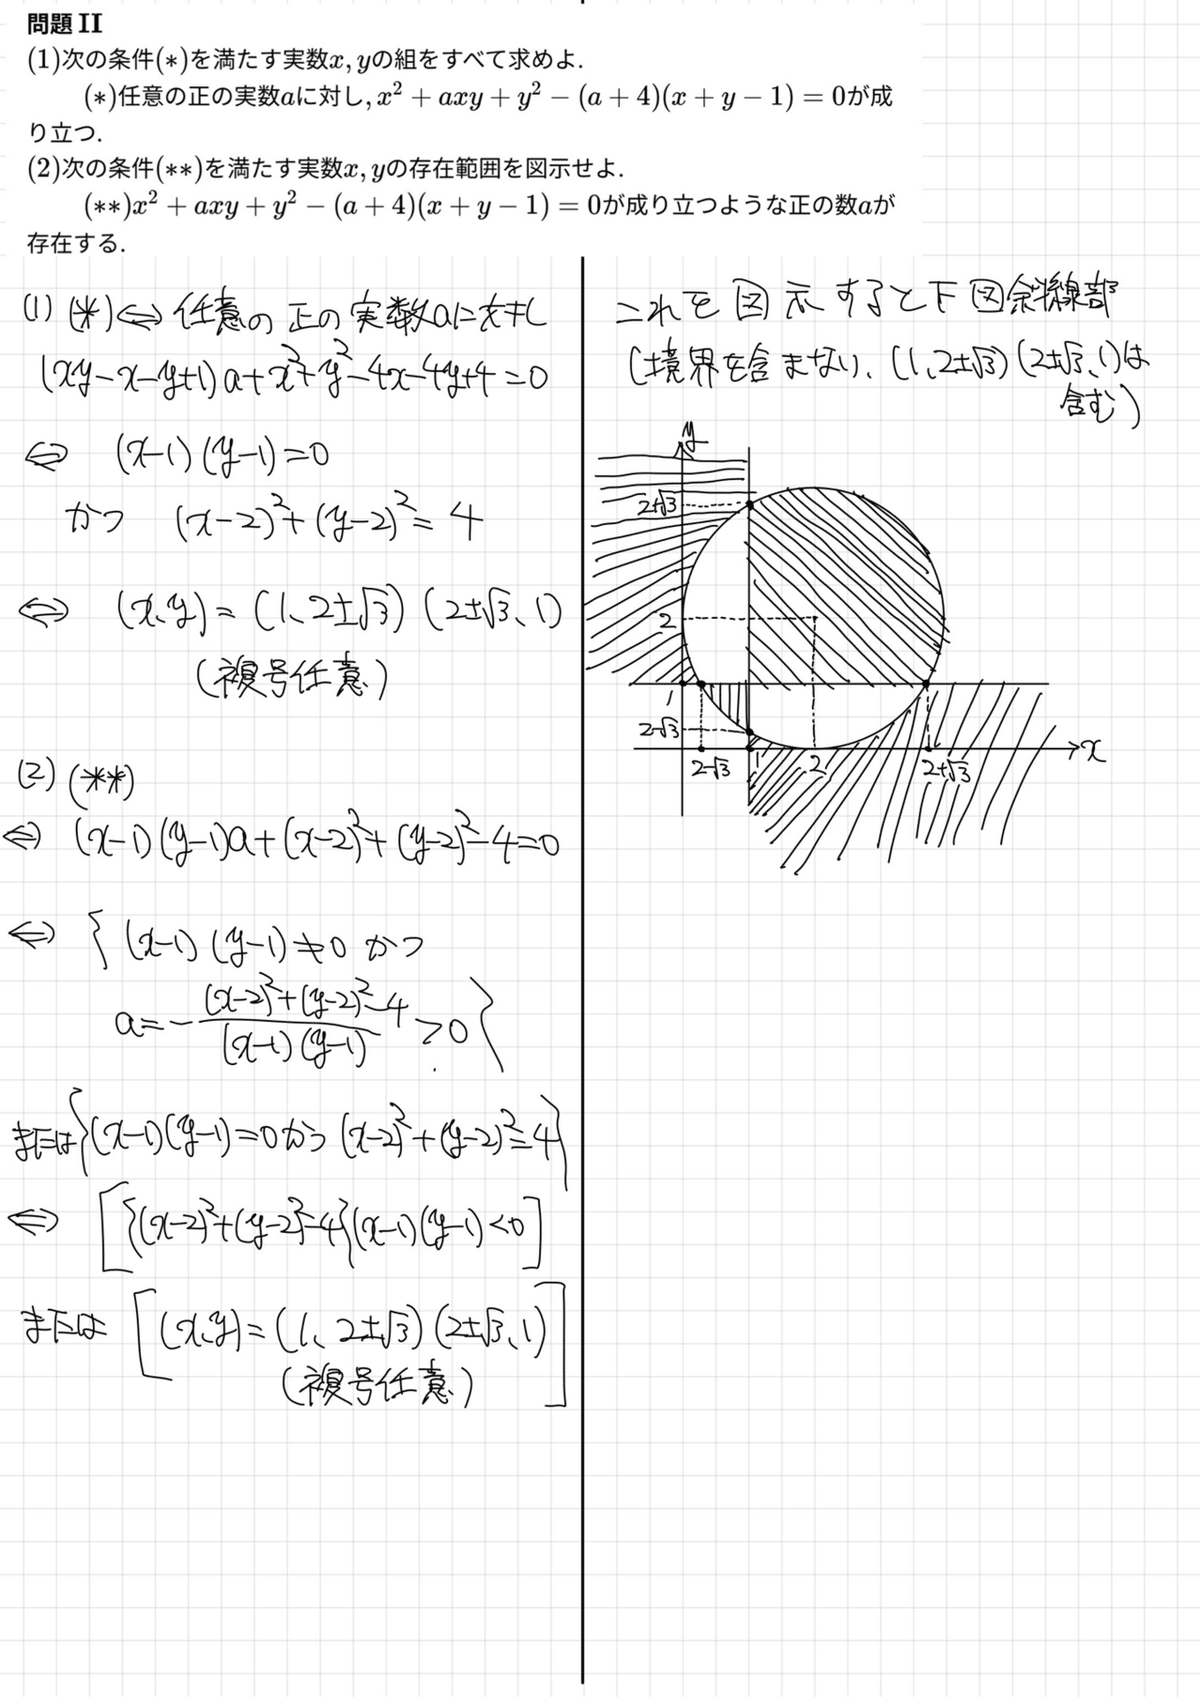 問題 II
(1)次の条件(∗)を満たす実数x, yの組をすべて求めよ.
(∗)任意の正の実数aに対し, x² + axy + y² − (a + 4)(x + y − 1) = 0が成
り立つ.
(2)次の条件(∗∗)を満たす実数x, yの存在範囲を図示せよ.
(∗∗)x² + axy + y² − (a + 4)(x + y − 1) = 0が成り立つような正の数aが
存在する.
(1) (*)⇔任意の正の実数aに対し
(xy−x−y+1)a+x²+y²−4x−4y+4=0
⇔ (x−1)(y−1)=0
かつ (x−2)²+(y−2)²=4
⇔ (x、y)=(1、2±√3)(2±√3、1)
(複号任意)
(2) (**)
⇔ (x−1)(y−1)a+(x−2)²+(y−2)²−4=0
⇔ { (x−1)(y−1)≠0 かつ
a=−((x−2)²+(y−2)²−4)/((x−1)(y−1))>0 }
または{(x−1)(y−1)=0かつ(x−2)²+(y−2)²=4}
⇔ [{(x−2)²+(y−2)²−4}(x−1)(y−1)<0]
または [(x、y)=(1、2±√3)(2±√3、1)
(複号任意)]
これを図示すると下図斜線部
(境界を含まない、(1、2±√3)(2±√3、1)は
含む)
y
2+√3
2
1
2−√3
2−√3
1
2
2+√3
x